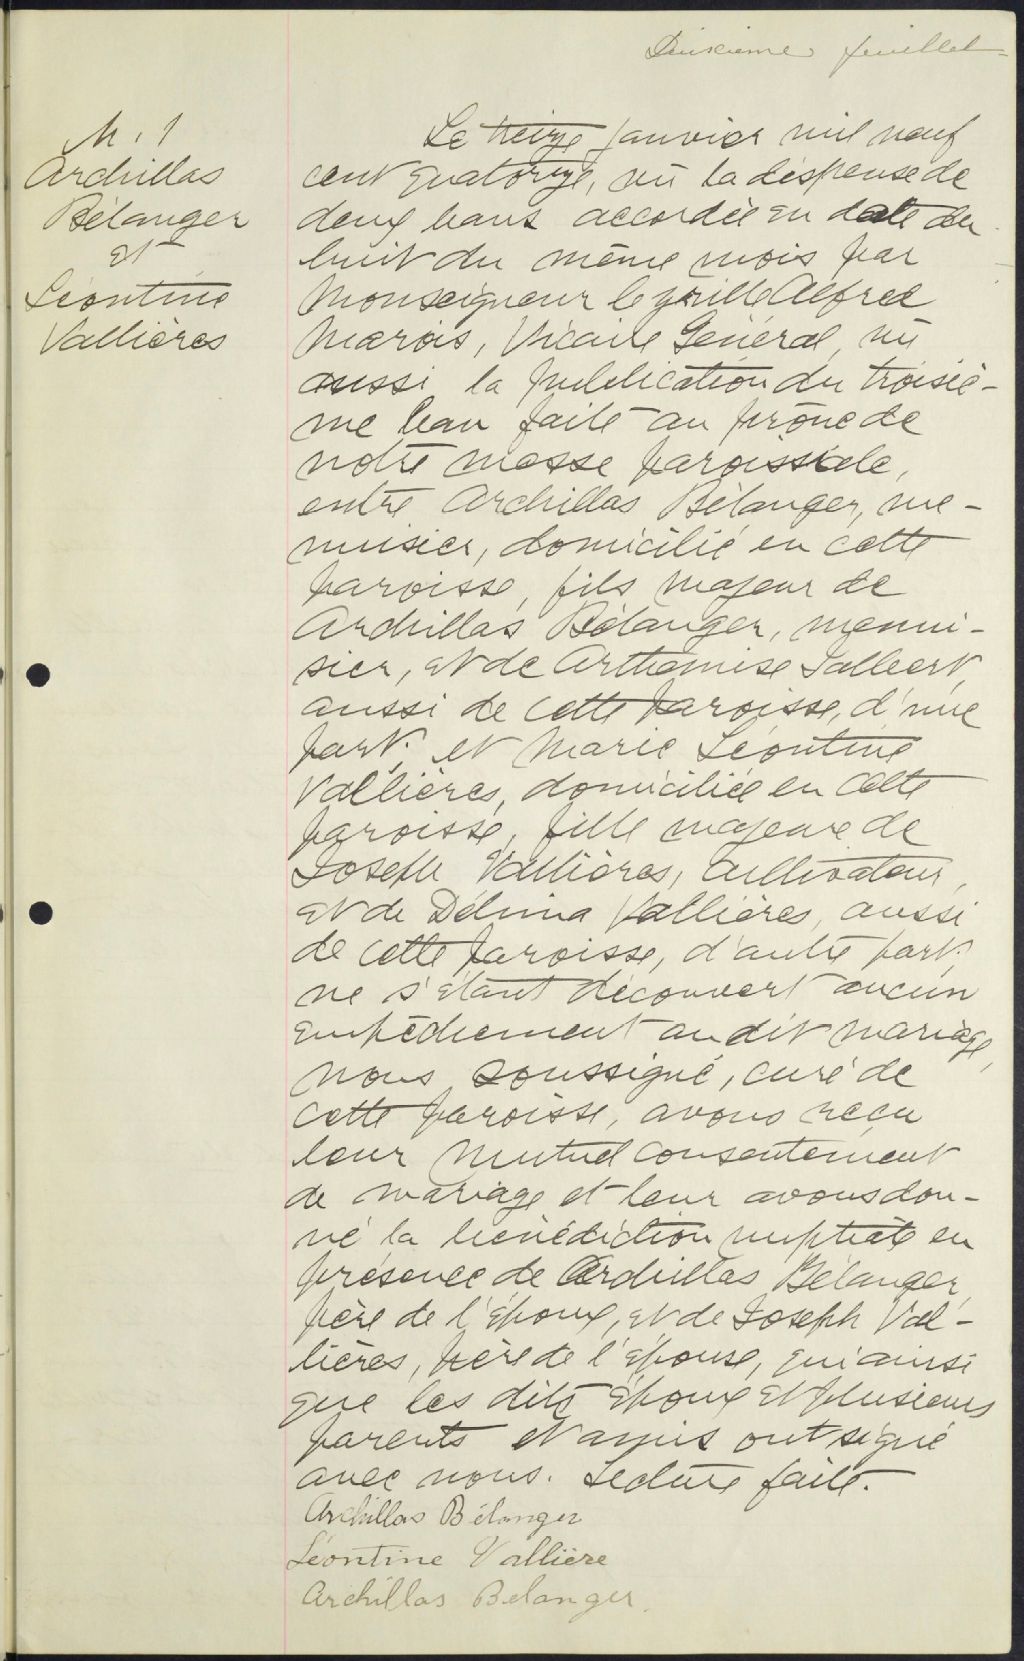 Deuxième feuillet
M. 1
Archillas
Bélanger
et
Léontine
Vallières
Le treize janvier mil neuf
cent quatorze, vu la dispense de
deux bans accordée en date du
huit du même mois par
Monseigneur Cyrille Alfred
Marois, Vicaire Général, vu
aussi la publication du troisiè-
me ban faite au prône de
notre messe paroissiale,
entre Archillas Bélanger, me-
nuisier, domicilié en cette
paroisse, fils majeur de
Archillas Bélanger, menui-
sier, et de Arthémise Jalbert,
aussi de cette paroisse, d'une
part; et Marie Léontine
Vallières, domiciliée en cette
paroisse, fille majeure de
Joseph Vallières, cultivateur,
et de Délima Vallières, aussi
de cette paroisse, d'autre part;
ne s'étant découvert aucun
empêchement au dit mariage,
nous soussigné, curé de
cette paroisse, avons reçu
leur mutuel consentement
de mariage et leur avons don-
né la bénédiction nuptiale en
présence de Archillas Bélanger,
père de l'époux, et de Joseph Val-
lières, père de l'épouse, qui ainsi
que les dits époux et plusieurs
parents et amis ont signé
avec nous. Lecture faite.
Archillas Bélanger
Léontine Vallière
Archillas Belanger.